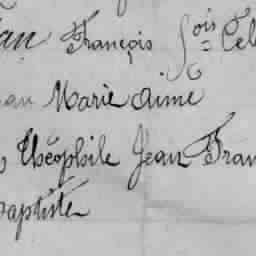 an François
an Marie Aimé
Théophile Jean Fran
Baptiste